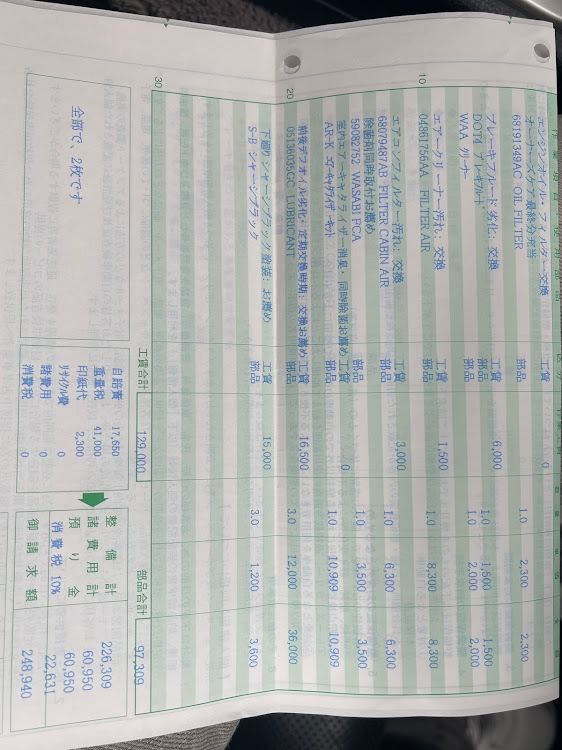 エンジンオイル・フィルター交換 工賃 0
オーナーズケア最終分充当
68191349AC OIL FILTER 部品 1.0 2,300 2,300
ブレーキフルード劣化; 交換 工賃 6,000
DOT4 ブレーキフルード 部品 1.0 1,500 1,500
WAA クリーナ 部品 1.0 2,000 2,000
10
エアークリーナー汚れ; 交換 工賃 1,500
04861756AA FILTER AIR 部品 1.0 8,300 8,300
エアコンフィルター汚れ; 交換 工賃 3,000
68079487AB FILTER CABIN AIR 部品 1.0 6,300 6,300
除菌剤同時取付お薦め
59082752 WASABI PCA 部品 1.0 3,500 3,500
室内エアーキャタライザー消臭・同時除菌お薦め 工賃 0
AR-K エアーキャタライザーキット 部品 1.0 10,909 10,909
20
前後デフオイル劣化・定期交換時期; 交換お薦め 工賃 16,500
05136035GC LUBRICANT 部品 3.0 12,000 36,000
下廻りシャーシブラック塗装; お薦め 工賃 15,000
S-B シャーシブラック 部品 3.0 1,200 3,600
30
工賃合計 129,000 部品合計 97,309
全部で、2枚です
自賠責 17,650
重量税 41,000
印紙代 2,300
リサイクル費 0
諸費用 0
消費税 0
整備計 226,309
諸費用計 60,950
預り金 60,950
消費税 10% 22,631
御請求額 248,940